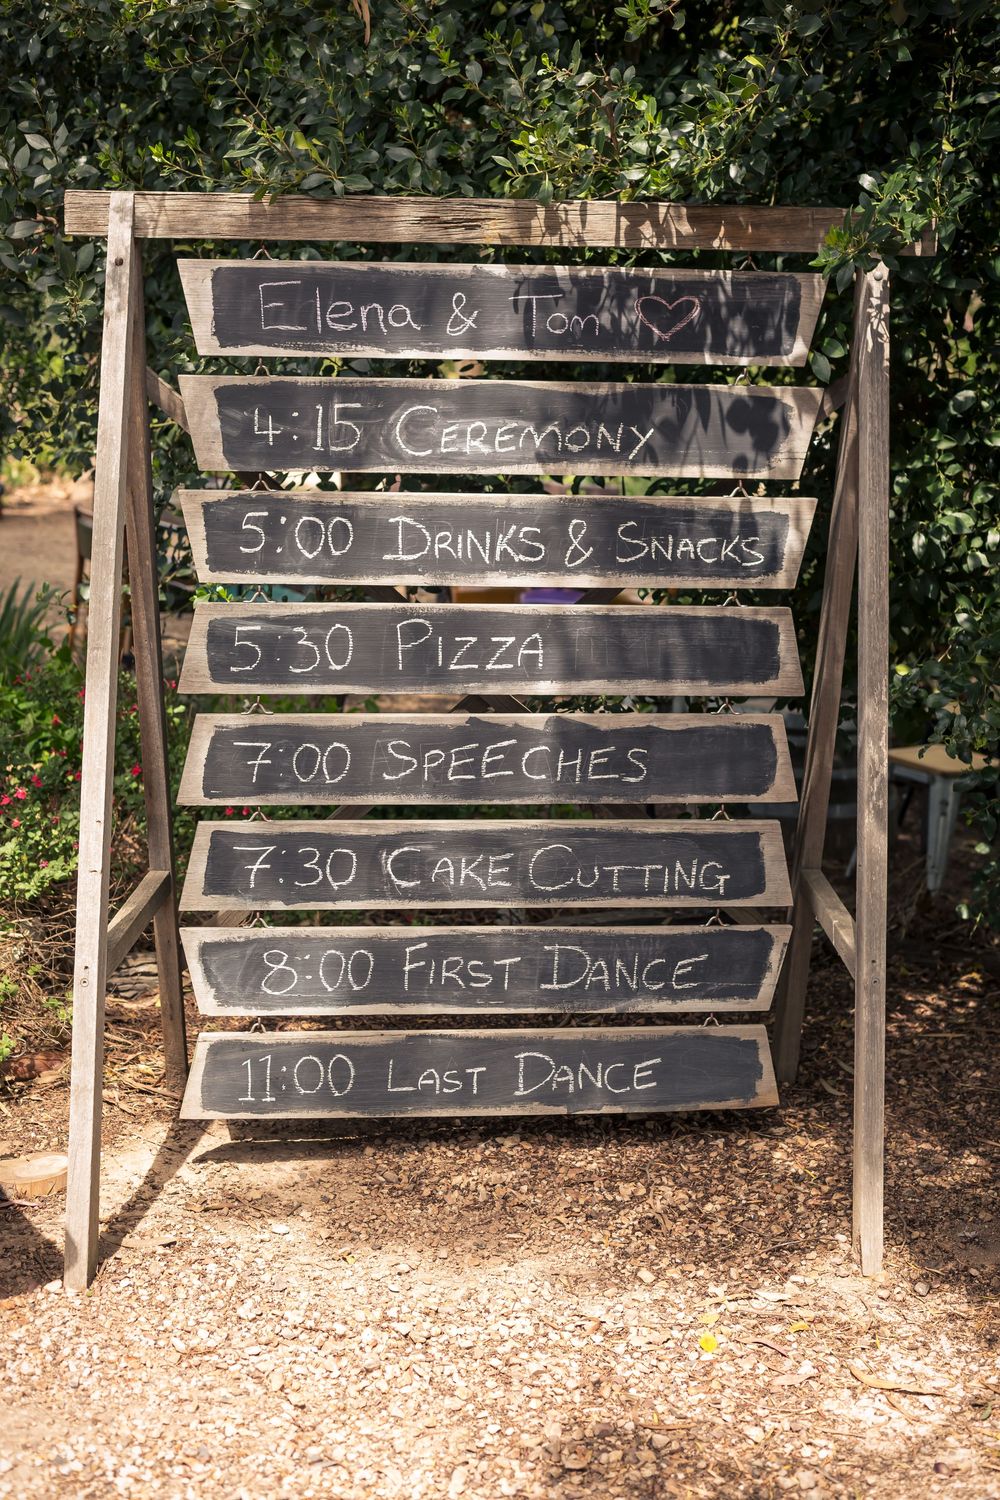 Elena & Tom
4:15 CEREMONY
5:00 DRINKS & SNACKS
5:30 PIZZA
7:00 SPEECHES
7:30 CAKE CUTTING
8:00 FIRST DANCE
11:00 LAST DANCE